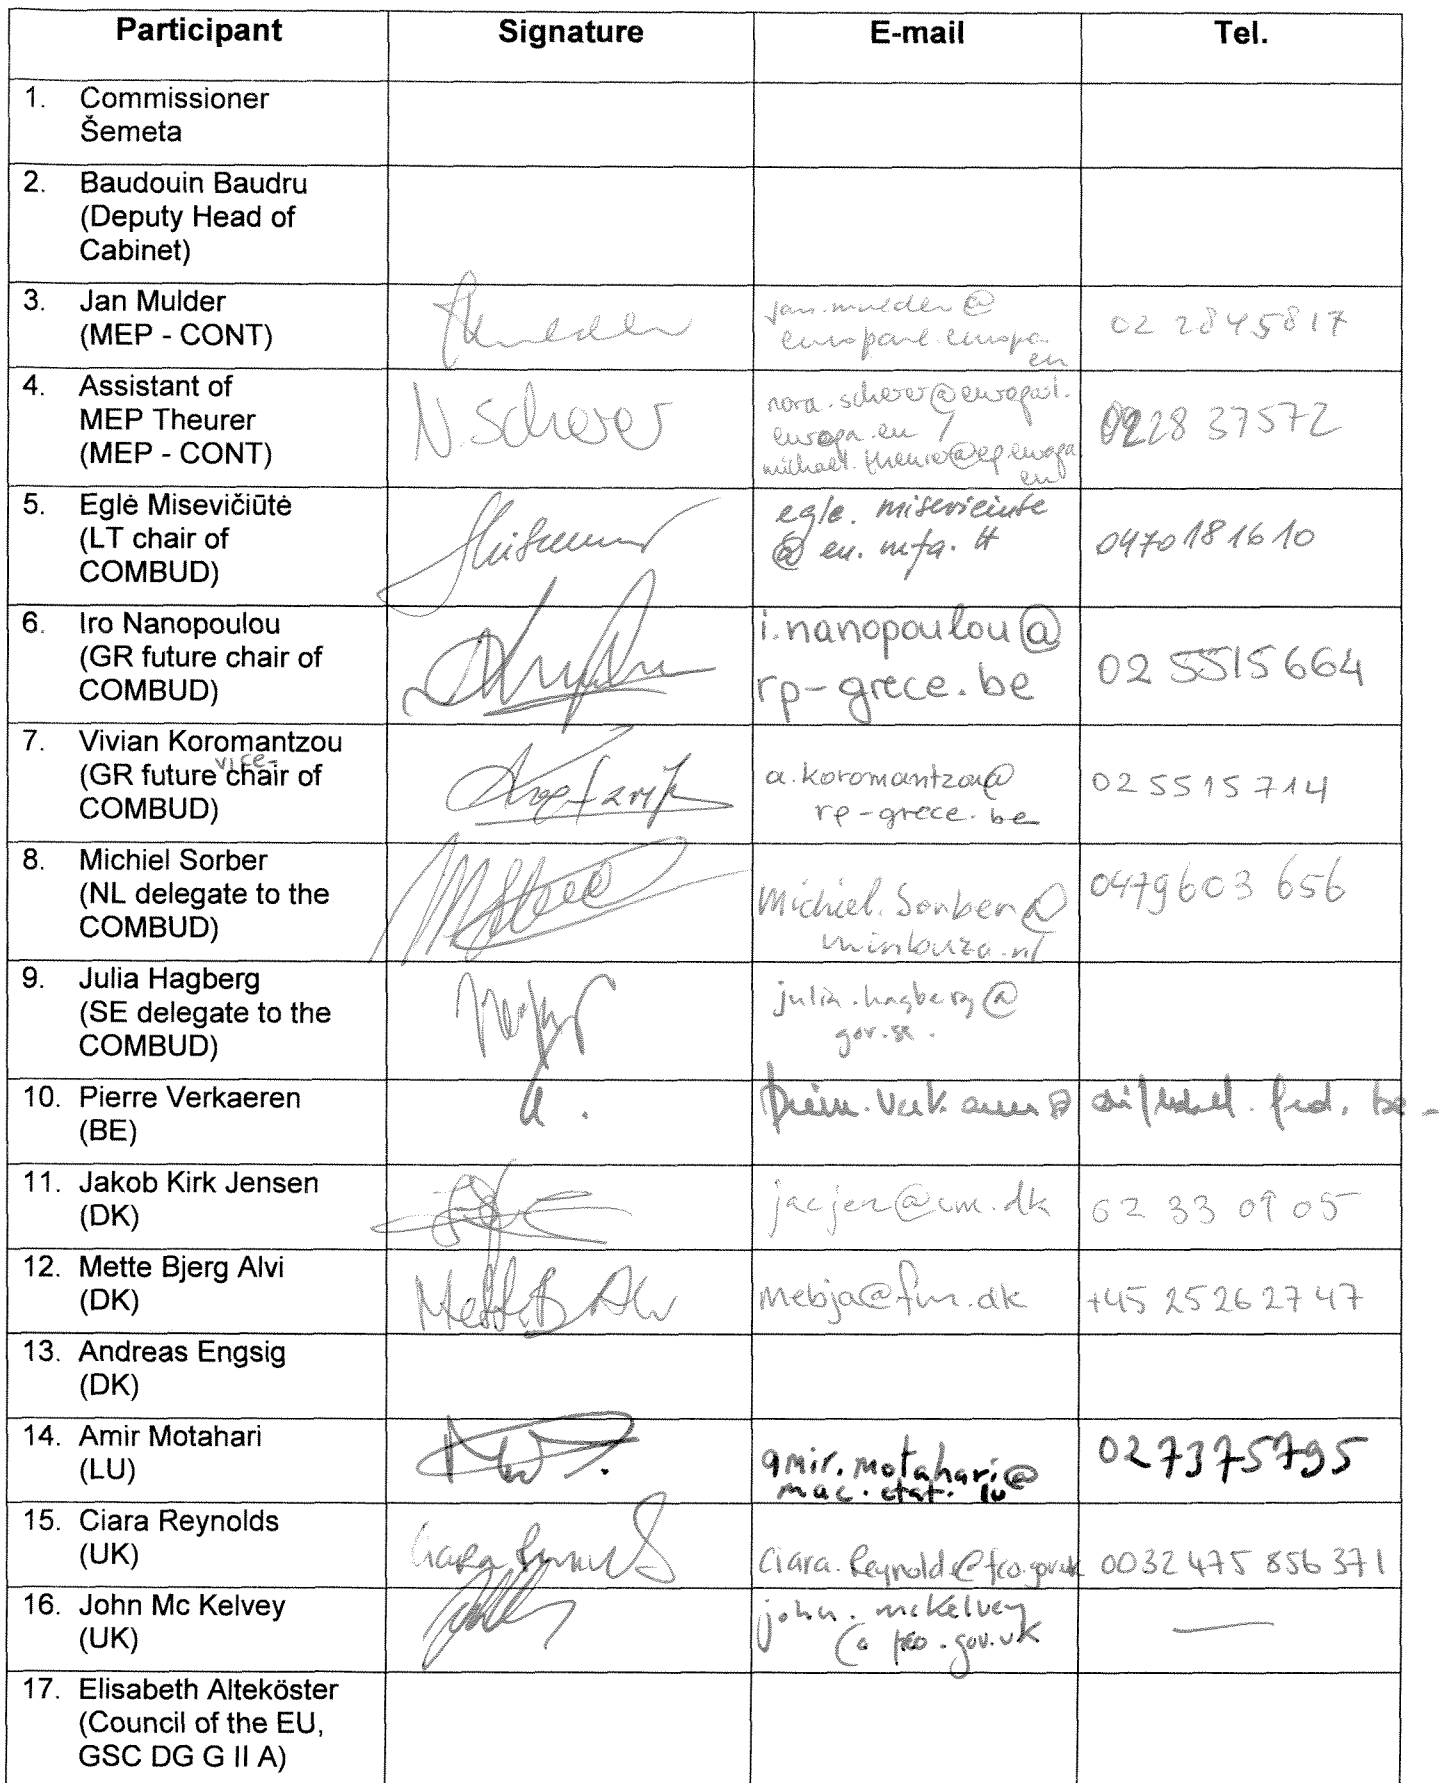 Participant Signature E-mail Tel.
1. Commissioner
Šemeta
2. Baudouin Baudru
(Deputy Head of
Cabinet)
3. Jan Mulder
(MEP - CONT)
jan.mulder@
europarl.europa.
eu
02 2845817
4. Assistant of
MEP Theurer
(MEP - CONT)
N. Scherer
nora.scherer@europarl.
europa.eu /
michael.theurer@ep.europa
eu
0228 37572
5. Eglė Misevičiūtė
(LT chair of
COMBUD)
egle. miseviciute
@ eu. mfa. lt
0470181610
6. Iro Nanopoulou
(GR future chair of
COMBUD)
i.nanopoulou@
rp-grece.be
02 5515664
7. Vivian Koromantzou
(GR future vice-chair of
COMBUD)
a.koromantzou@
rp-grece.be
02 5515714
8. Michiel Sorber
(NL delegate to the
COMBUD)
Michiel.Sorber@
minbuza.nl
0479603 656
9. Julia Hagberg
(SE delegate to the
COMBUD)
julia.hagberg@
gov.se.
10. Pierre Verkaeren
(BE)
fed. be
11. Jakob Kirk Jensen
(DK)
jacjen@um.dk
02 33 09 05
12. Mette Bjerg Alvi
(DK)
Mette B Alvi
mebja@fm.dk
+45 25262747
13. Andreas Engsig
(DK)
14. Amir Motahari
(LU)
amir.motahari@
mae.etat.lu
027375795
15. Ciara Reynolds
(UK)
Ciara Reynolds
Ciara.Reynolds@fco.gov.uk
0032 475 856 371
16. John Mc Kelvey
(UK)
john.mckelvey
@fco.gov.uk
—
17. Elisabeth Alteköster
(Council of the EU,
GSC DG G II A)